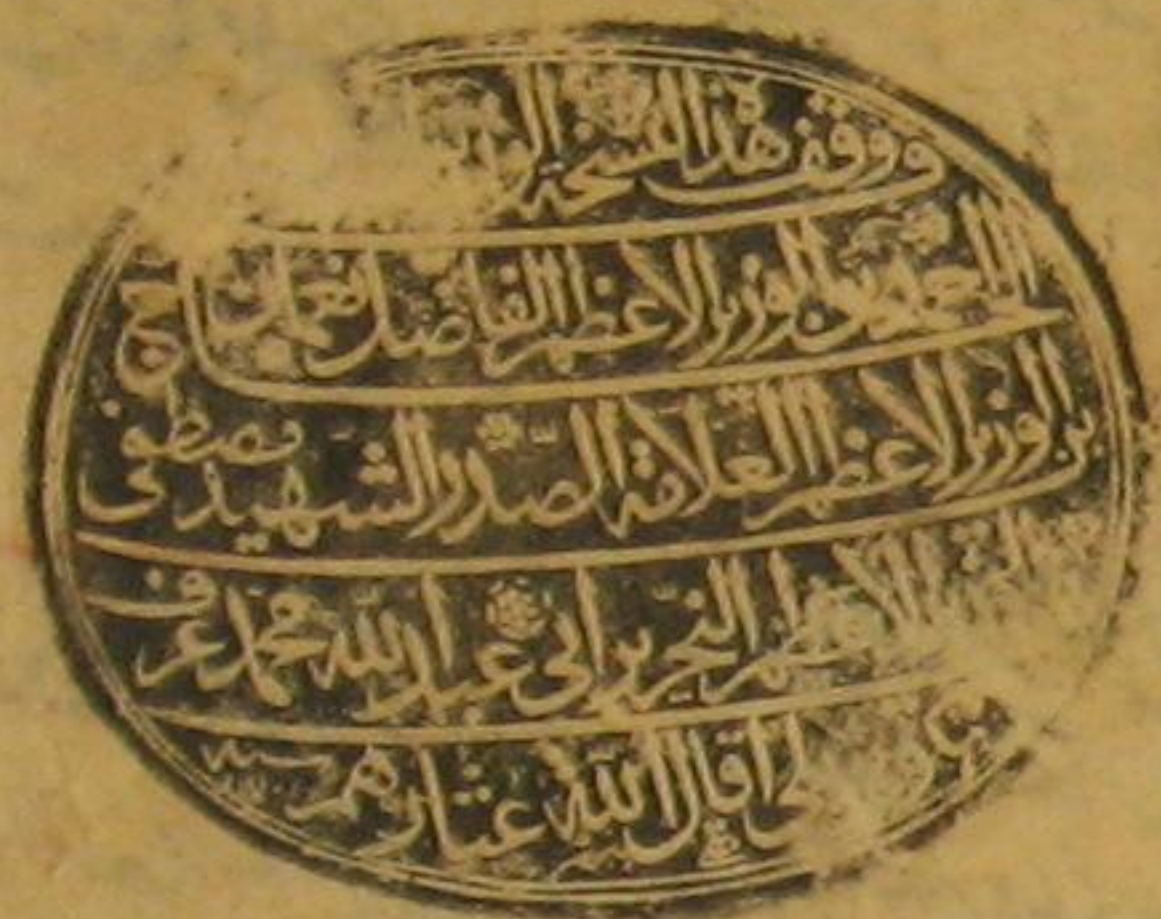 ووقف هذا النسخة
الحاج احمد بن الوزير الاعظم الفاضل نعمان
بن الوزير الاعظم العلامة الصدر الشهيد مصطفى
الاعظم النحرير ابي عبد الله محمد عرف
اقال الله عثارهم سنه